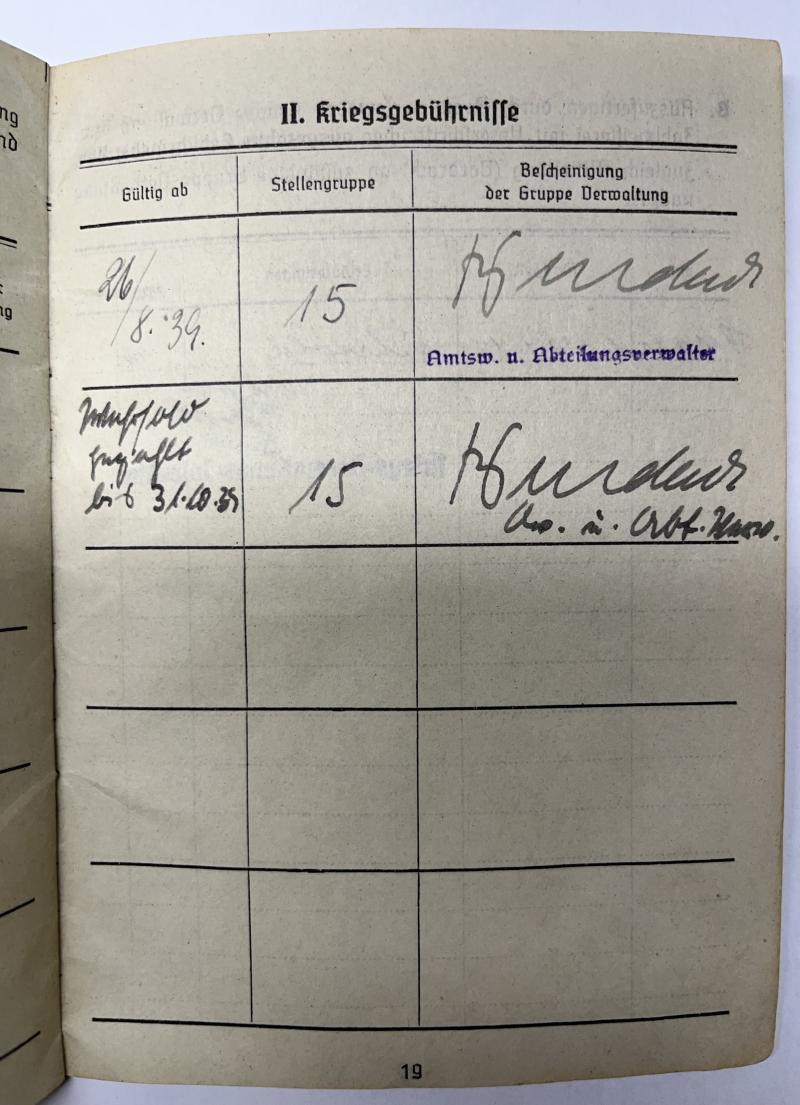 II. Kriegsgebührnisse
Gültig ab
Stellengruppe
Bescheinigung
der Gruppe Verwaltung
26/8.39.
15
Amtsw. u. Abteilungsverwalter
Wehrsold
gezahlt
bis 31.10.39
15
u. Abt. Verw.
19